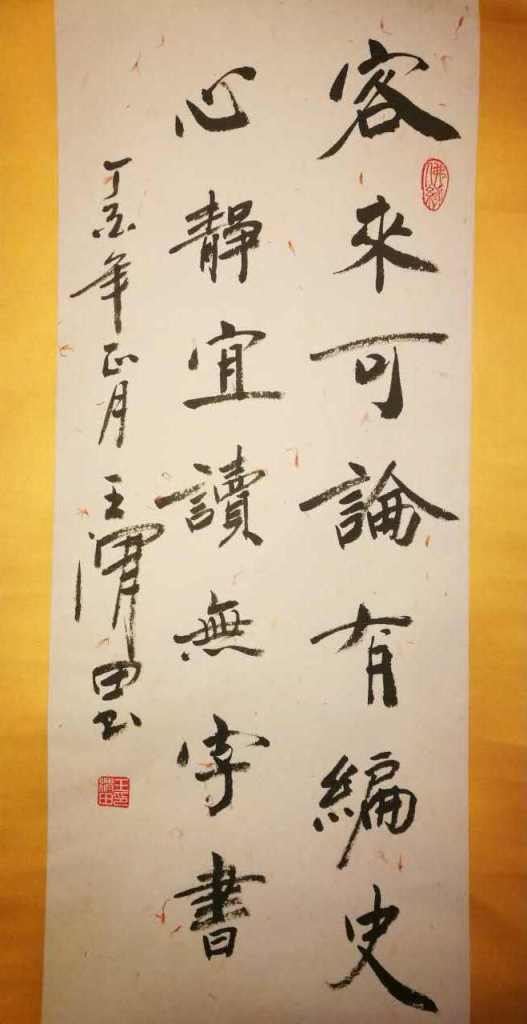 客來可論有編史
心靜宜讀無字書
丁亥年正月王渭田书